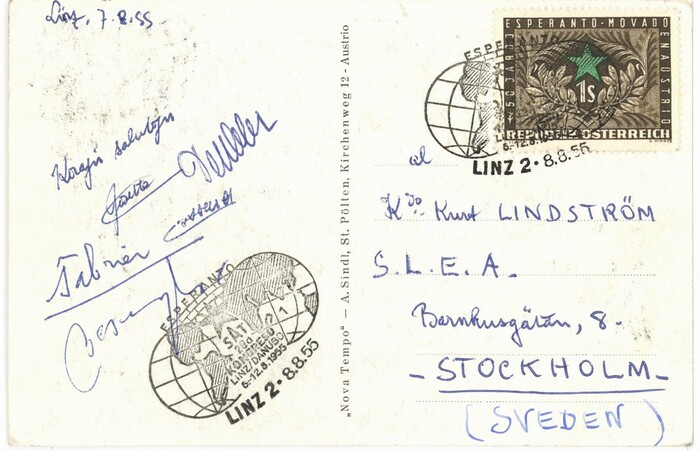 Linz, 7.8.55
Korajn salutojn
Fabrier
ESPERANTO
SAT
KONGRESO
LINZ/DANUBO
6-12.8.1955
LINZ 2 • 8.8.55
„Nova Tempo" — A. Sindl, St. Pölten, Kirchenweg 12 - Austrio
50 JAROJ ESPERANTO-MOVADO EN AŬSTRIO
1s
REPUBLIK ÖSTERREICH
ESPERANTO
6-12.8.
LINZ 2 • 8.8.55
al
Kdo Kurt LINDSTRÖM
S.L.E.A.
Barnhusgatan, 8-
- STOCKHOLM -
(SVEDEN)